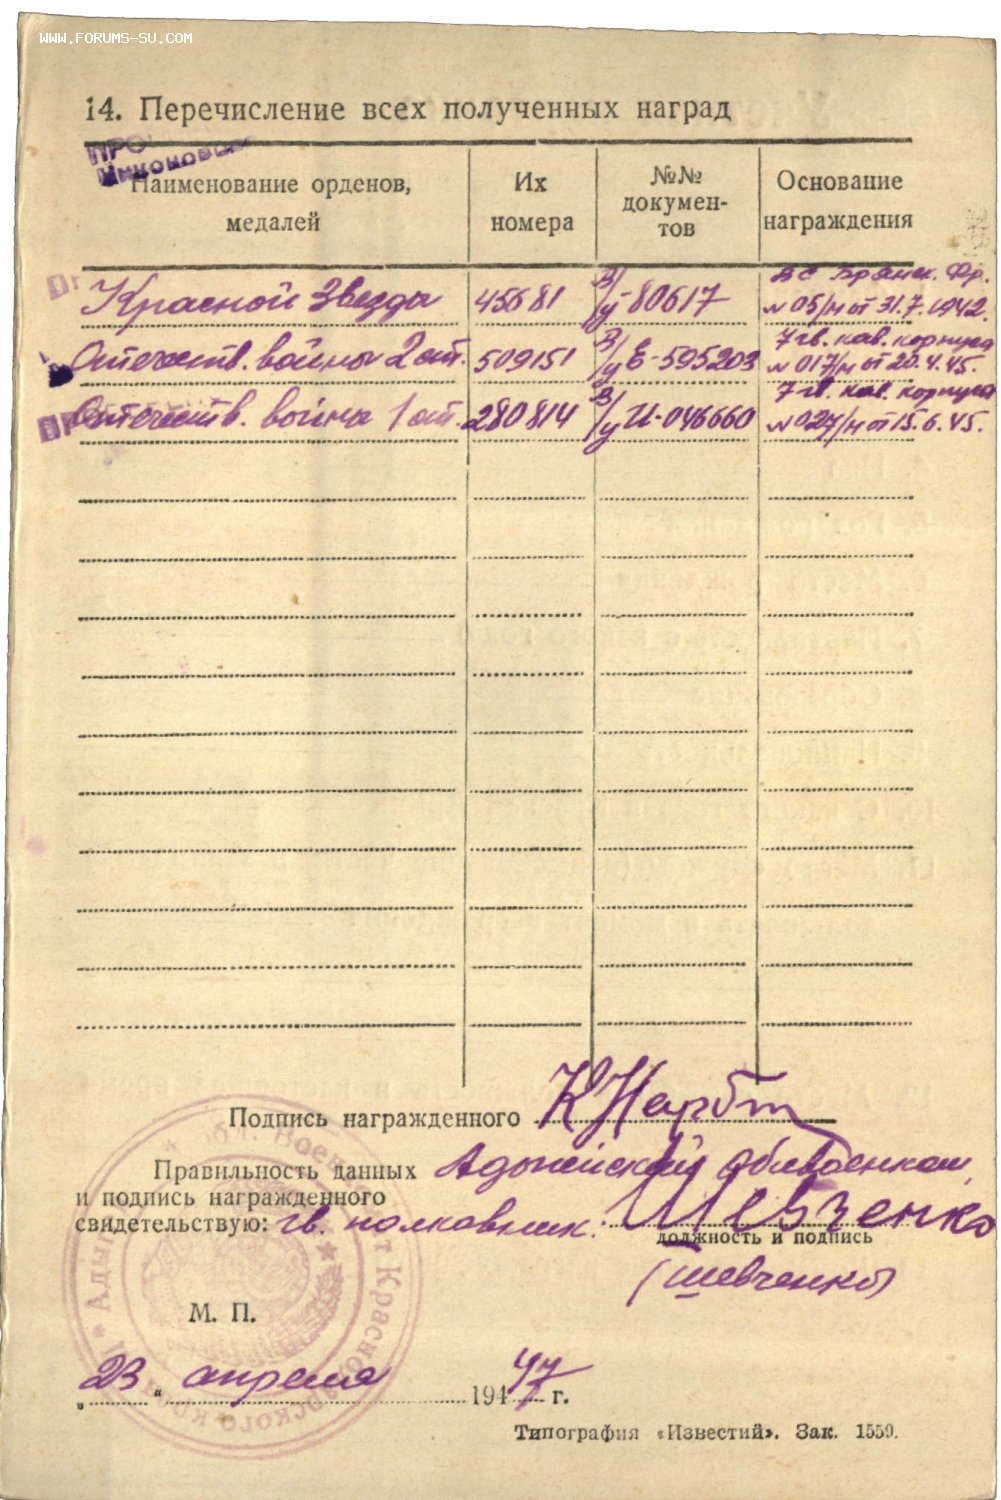 WWW.FORUMS-SU.COM
14. Перечисление всех полученных наград
ПРО
Наименование орденов, медалей
Их номера
№№ докумен-тов
Основание награждения
Красной Звезды 45681 В/у 80617 ВС Брянск. Фр. №05/н от 31.7.1942.
Отечеств. войны 2 ст. 509151 В/у Е-595203 7 гв. кав. корпуса №017/н от 20.4.45.
Отечеств. война 1 ст. 280814 В/у И-046660 7 гв. кав. корпуса №027/н от 15.6.45.
Подпись награжденного
Правильность данных Адыгейский облвоенком
и подпись награжденного
свидетельствую: гв. полковник: Шевченко
должность и подпись
(Шевченко)
М. П.
„23“ апреля 1947 г.
Типография «Известий». Зак. 1559.